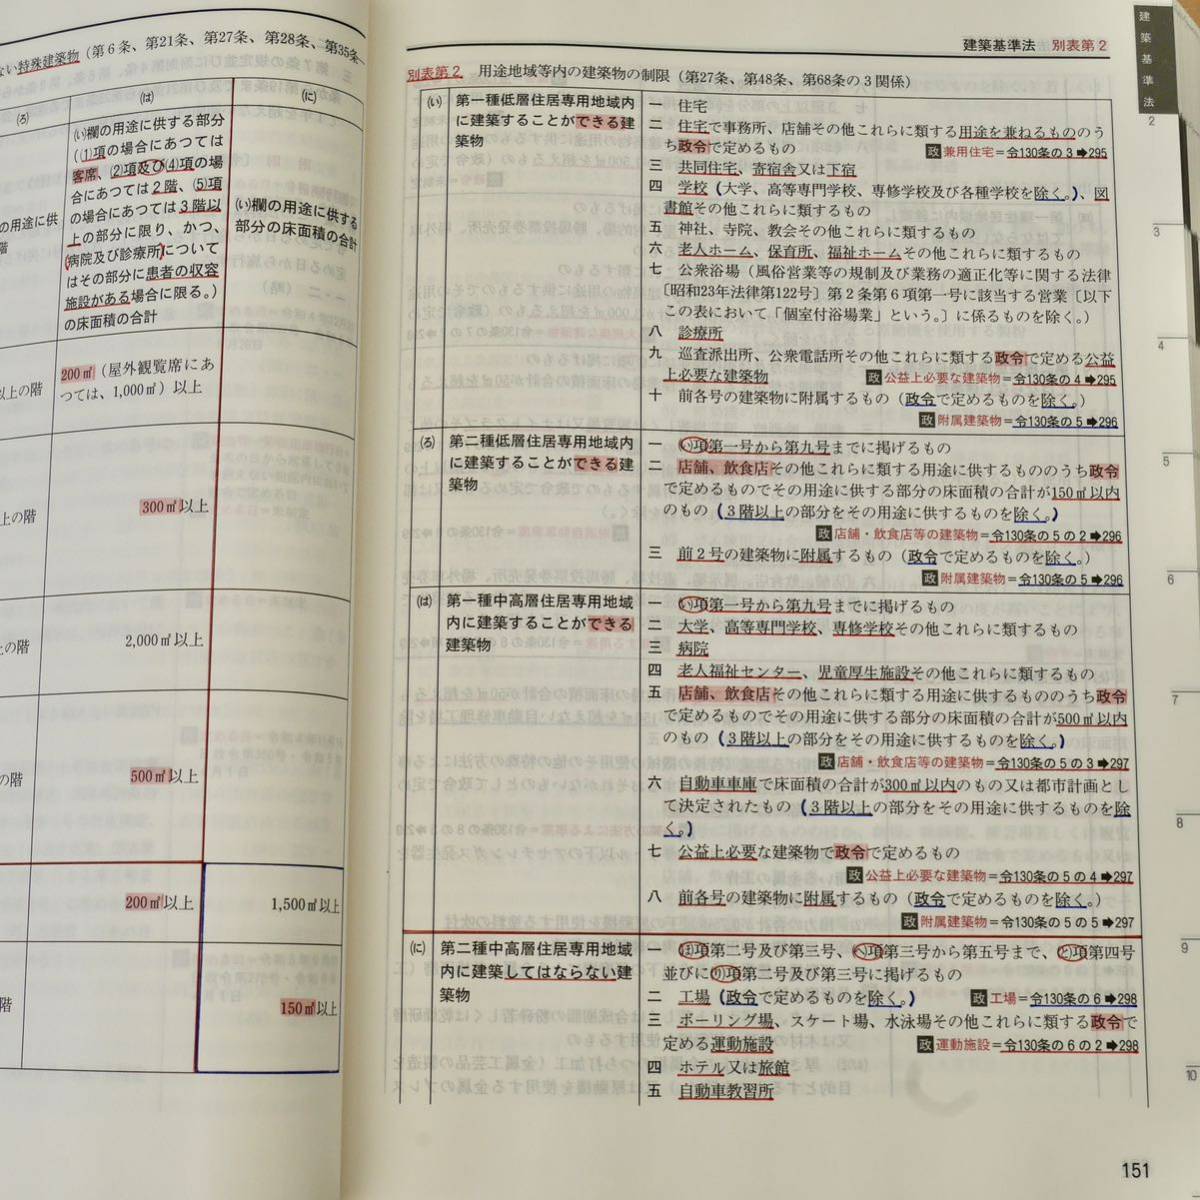 ない特殊建築物(第6条、第21条、第27条、第28条、第35条、
(ろ)
(は)
(に)
の用途に供
階
(い)欄の用途に供する部分
((1)項の場合にあつては
客席、(2)項及び(4)項の場
合にあつては2階、(5)項
の場合にあつては3階以
上の部分に限り、かつ、
病院及び診療所について
はその部分に患者の収容
施設がある場合に限る。)
の床面積の合計
(い)欄の用途に供する
部分の床面積の合計
以上の階
200㎡(屋外観覧席にあ
つては、1,000㎡)以上
上の階
300㎡以上
上の階
2,000㎡以上
の階
500㎡以上
200㎡以上
1,500㎡以上
階
150㎡以上
建築基準法 別表第2
別表第2 用途地域等内の建築物の制限(第27条、第48条、第68条の3関係)
(い) 第一種低層住居専用地域内
に建築することができる建
築物
一 住宅
二 住宅で事務所、店舗その他これらに類する用途を兼ねるもののう
ち政令で定めるもの 政兼用住宅=令130条の3➡295
三 共同住宅、寄宿舎又は下宿
四 学校(大学、高等専門学校、専修学校及び各種学校を除く。)、図
書館その他これらに類するもの
五 神社、寺院、教会その他これらに類するもの
六 老人ホーム、保育所、福祉ホームその他これらに類するもの
七 公衆浴場(風俗営業等の規制及び業務の適正化等に関する法律
〔昭和23年法律第122号〕第2条第6項第一号に該当する営業〔以下
この表において「個室付浴場業」という。〕に係るものを除く。)
八 診療所
九 巡査派出所、公衆電話所その他これらに類する政令で定める公益
上必要な建築物 政公益上必要な建築物=令130条の4➡295
十 前各号の建築物に附属するもの(政令で定めるものを除く。)
政附属建築物=令130条の5➡296
(ろ) 第二種低層住居専用地域内
に建築することができる建
築物
一 (い)項第一号から第九号までに掲げるもの
二 店舗、飲食店その他これらに類する用途に供するもののうち政令
で定めるものでその用途に供する部分の床面積の合計が150㎡以内
のもの(3階以上の部分をその用途に供するものを除く。)
政店舗・飲食店等の建築物=令130条の5の2➡296
三 前2号の建築物に附属するもの(政令で定めるものを除く。)
政附属建築物=令130条の5➡296
(は) 第一種中高層住居専用地域
内に建築することができる
建築物
一 (い)項第一号から第九号までに掲げるもの
二 大学、高等専門学校、専修学校その他これらに類するもの
三 病院
四 老人福祉センター、児童厚生施設その他これらに類するもの
五 店舗、飲食店その他これらに類する用途に供するもののうち政令
で定めるものでその用途に供する部分の床面積の合計が500㎡以内
のもの(3階以上の部分をその用途に供するものを除く。)
政店舗・飲食店等の建築物=令130条の5の3➡297
六 自動車車庫で床面積の合計が300㎡以内のもの又は都市計画とし
て決定されたもの(3階以上の部分をその用途に供するものを除
く。)
七 公益上必要な建築物で政令で定めるもの
政公益上必要な建築物=令130条の5の4➡297
八 前各号の建築物に附属するもの(政令で定めるものを除く。)
政附属建築物=令130条の5の5➡297
(に) 第二種中高層住居専用地域
内に建築してはならない建
築物
一 (ほ)項第二号及び第三号、(へ)項第三号から第五号まで、(と)項第四号
並びに(り)項第二号及び第三号に掲げるもの
二 工場(政令で定めるものを除く。) 政工場=令130条の6➡298
三 ボーリング場、スケート場、水泳場その他これらに類する政令で
定める運動施設 政運動施設=令130条の6の2➡298
四 ホテル又は旅館
五 自動車教習所
151
建築基準法
2
3
4
5
6
7
8
9
10